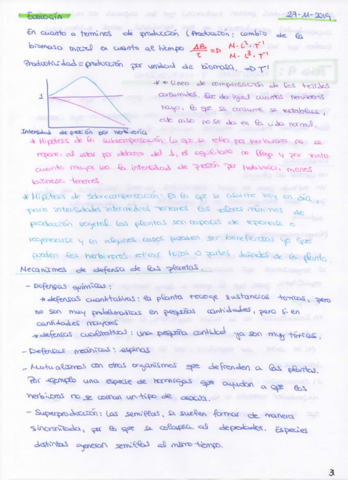 Ecología 27-11-2019
En cuanto a términos de producción (Producción: cambio de la
biomasa inicial en cuanto al tiempo ΔB/t => M·L²·T⁻¹ M·L³·T⁻¹
Productividad = producción por unidad de biomasa, => T⁻¹
* Línea de compensación de los tejidos
consumidos. Me da igual cuantos herbívoros
haya, lo que se consume se metaboliza,
este caso no se da en la vida normal.
1
Intensidad de presión por herbivoría
* Hipótesis de la subcompensación: Lo que se retira por herbivoría no se
repone al estar por debajo del 1, el equilibrio no llega y por tanto
cuanto mayor sea la intensidad de presión por herbívoros, menos
biomasa tenemos
* Hipótesis de sobrecompensación: Es la que se asume hoy en día,
para intensidades intermedias tenemos los valores máximos de
producción vegetal. Las plantas son capaces de reponerse o
regenerarse y en algunos casos pueden ser beneficiadas ya que
pueden los herbívoros retirar hojas o partes dañadas de la planta.
Mecanismos de defensa de las plantas.
- Defensas químicas:
* defensas cuantitativas: la planta recoge sustancias tóxicas, pero
no son muy problemáticas en pequeñas cantidades, pero sí en
cantidades mayores
* defensas cualitativas: una pequeña cantidad ya son muy tóxicas.
- Defensas mecánicas: espinas
- Mutualismos con otros organismos que defienden a las plantas.
Por ejemplo una especie de hormigas que ayudan a que los
herbívoros no se coman un tipo de acacia.
- Superproducción: Las semillas, se suelen formar de manera
sincronizada, por lo que se colapsa al depredador. Especies
distintas generan semillas al mismo tiempo.
3